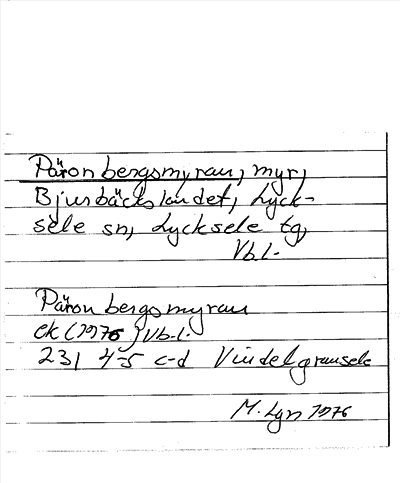 Päronbergsmyran, myr,
Bjursbäckslandet, Lyck-
sele sn, Lycksele tg,
Vb.l.
Päronbergsmyran
ek (1976) Vb.l.
231 4-5 c-d Vindelgransele
M. Lyn 1976